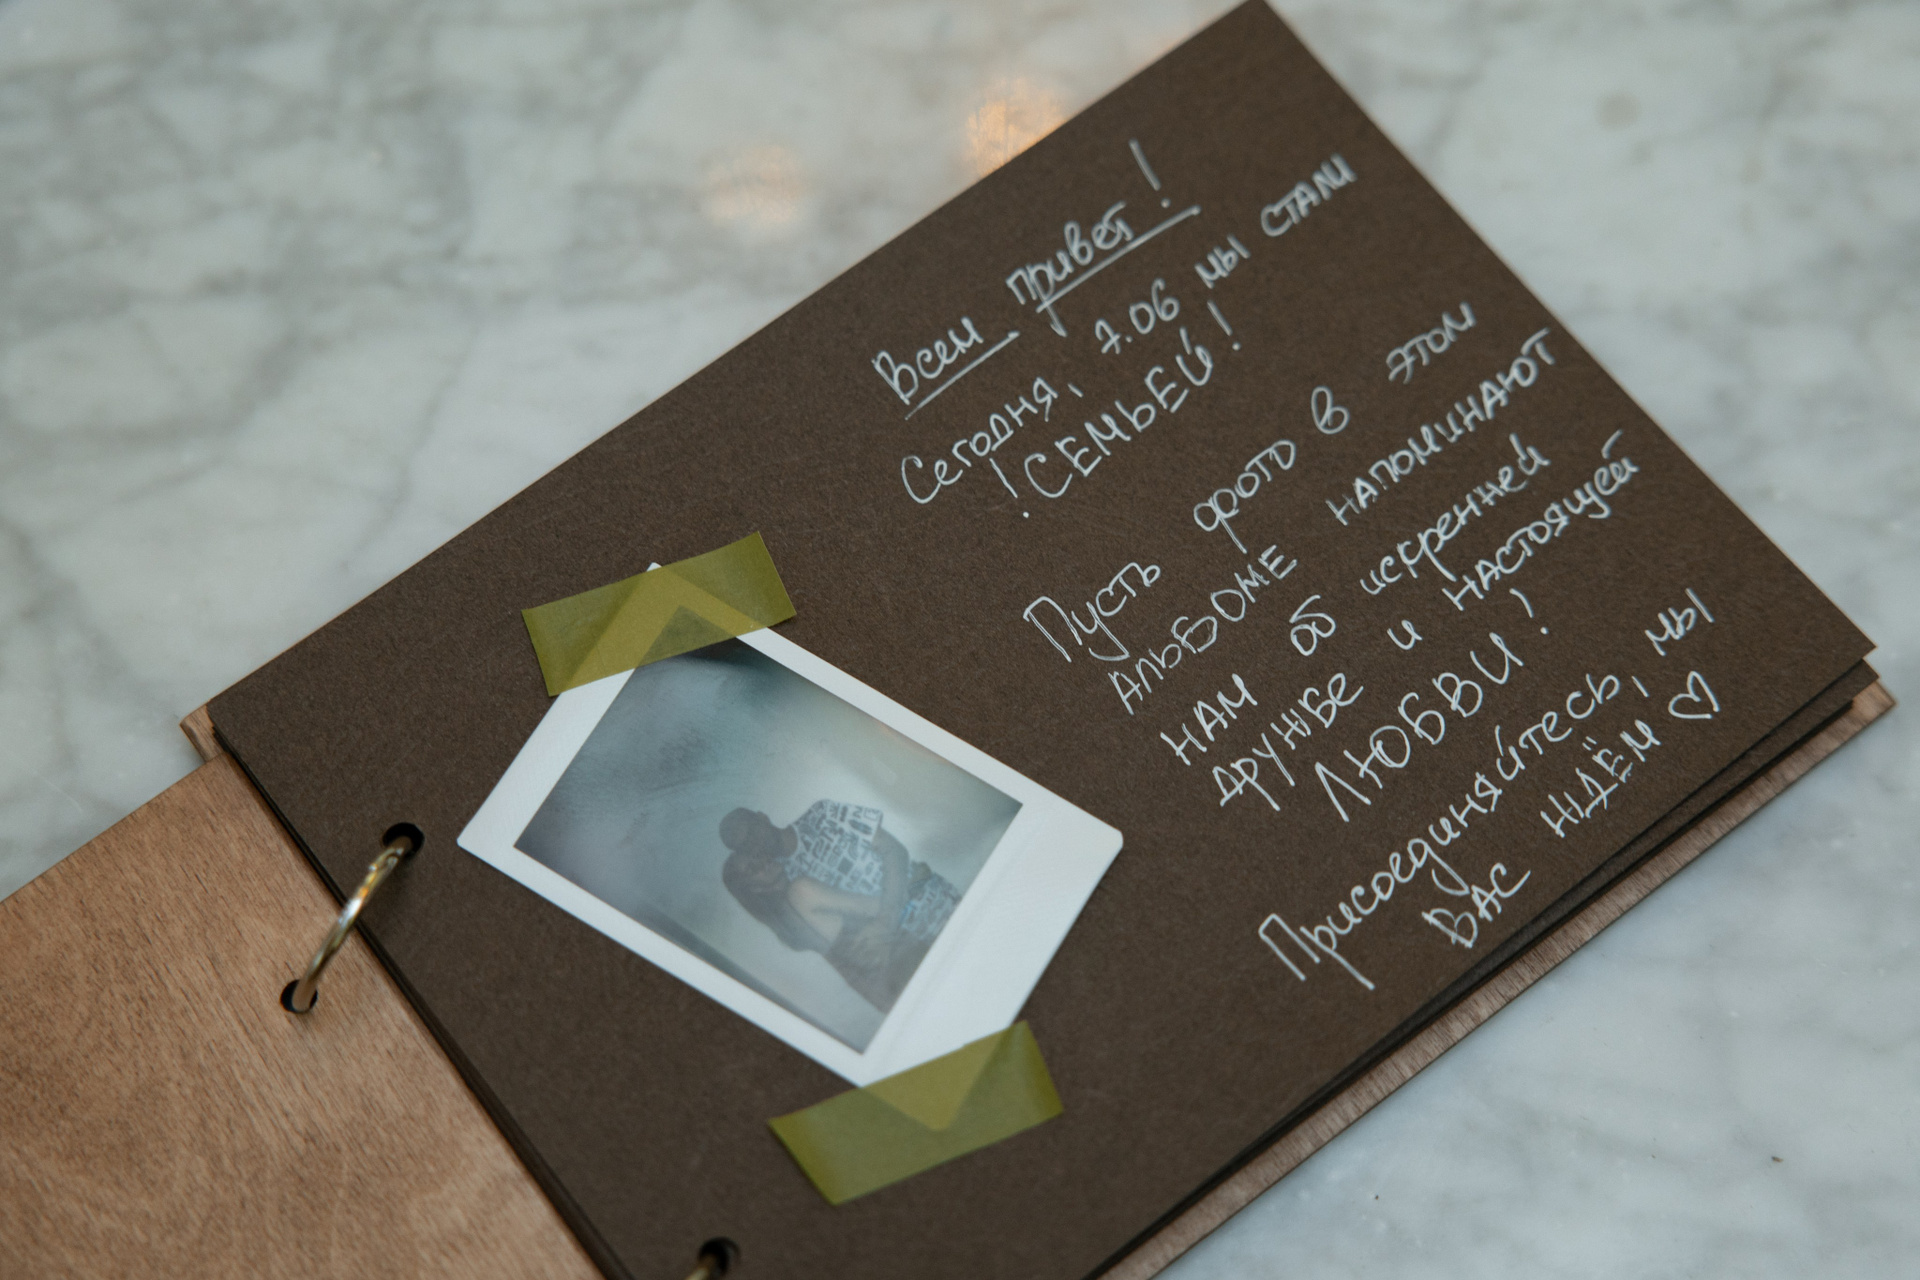 Всем привет!
Сегодня, 7.06 мы стали
! СЕМЬЕЙ!
Пусть фото в этом
альбоме напоминают
нам об искренней
дружбе и настоящей
ЛЮБВИ!
Присоединяйтесь, мы
вас ждём ♡